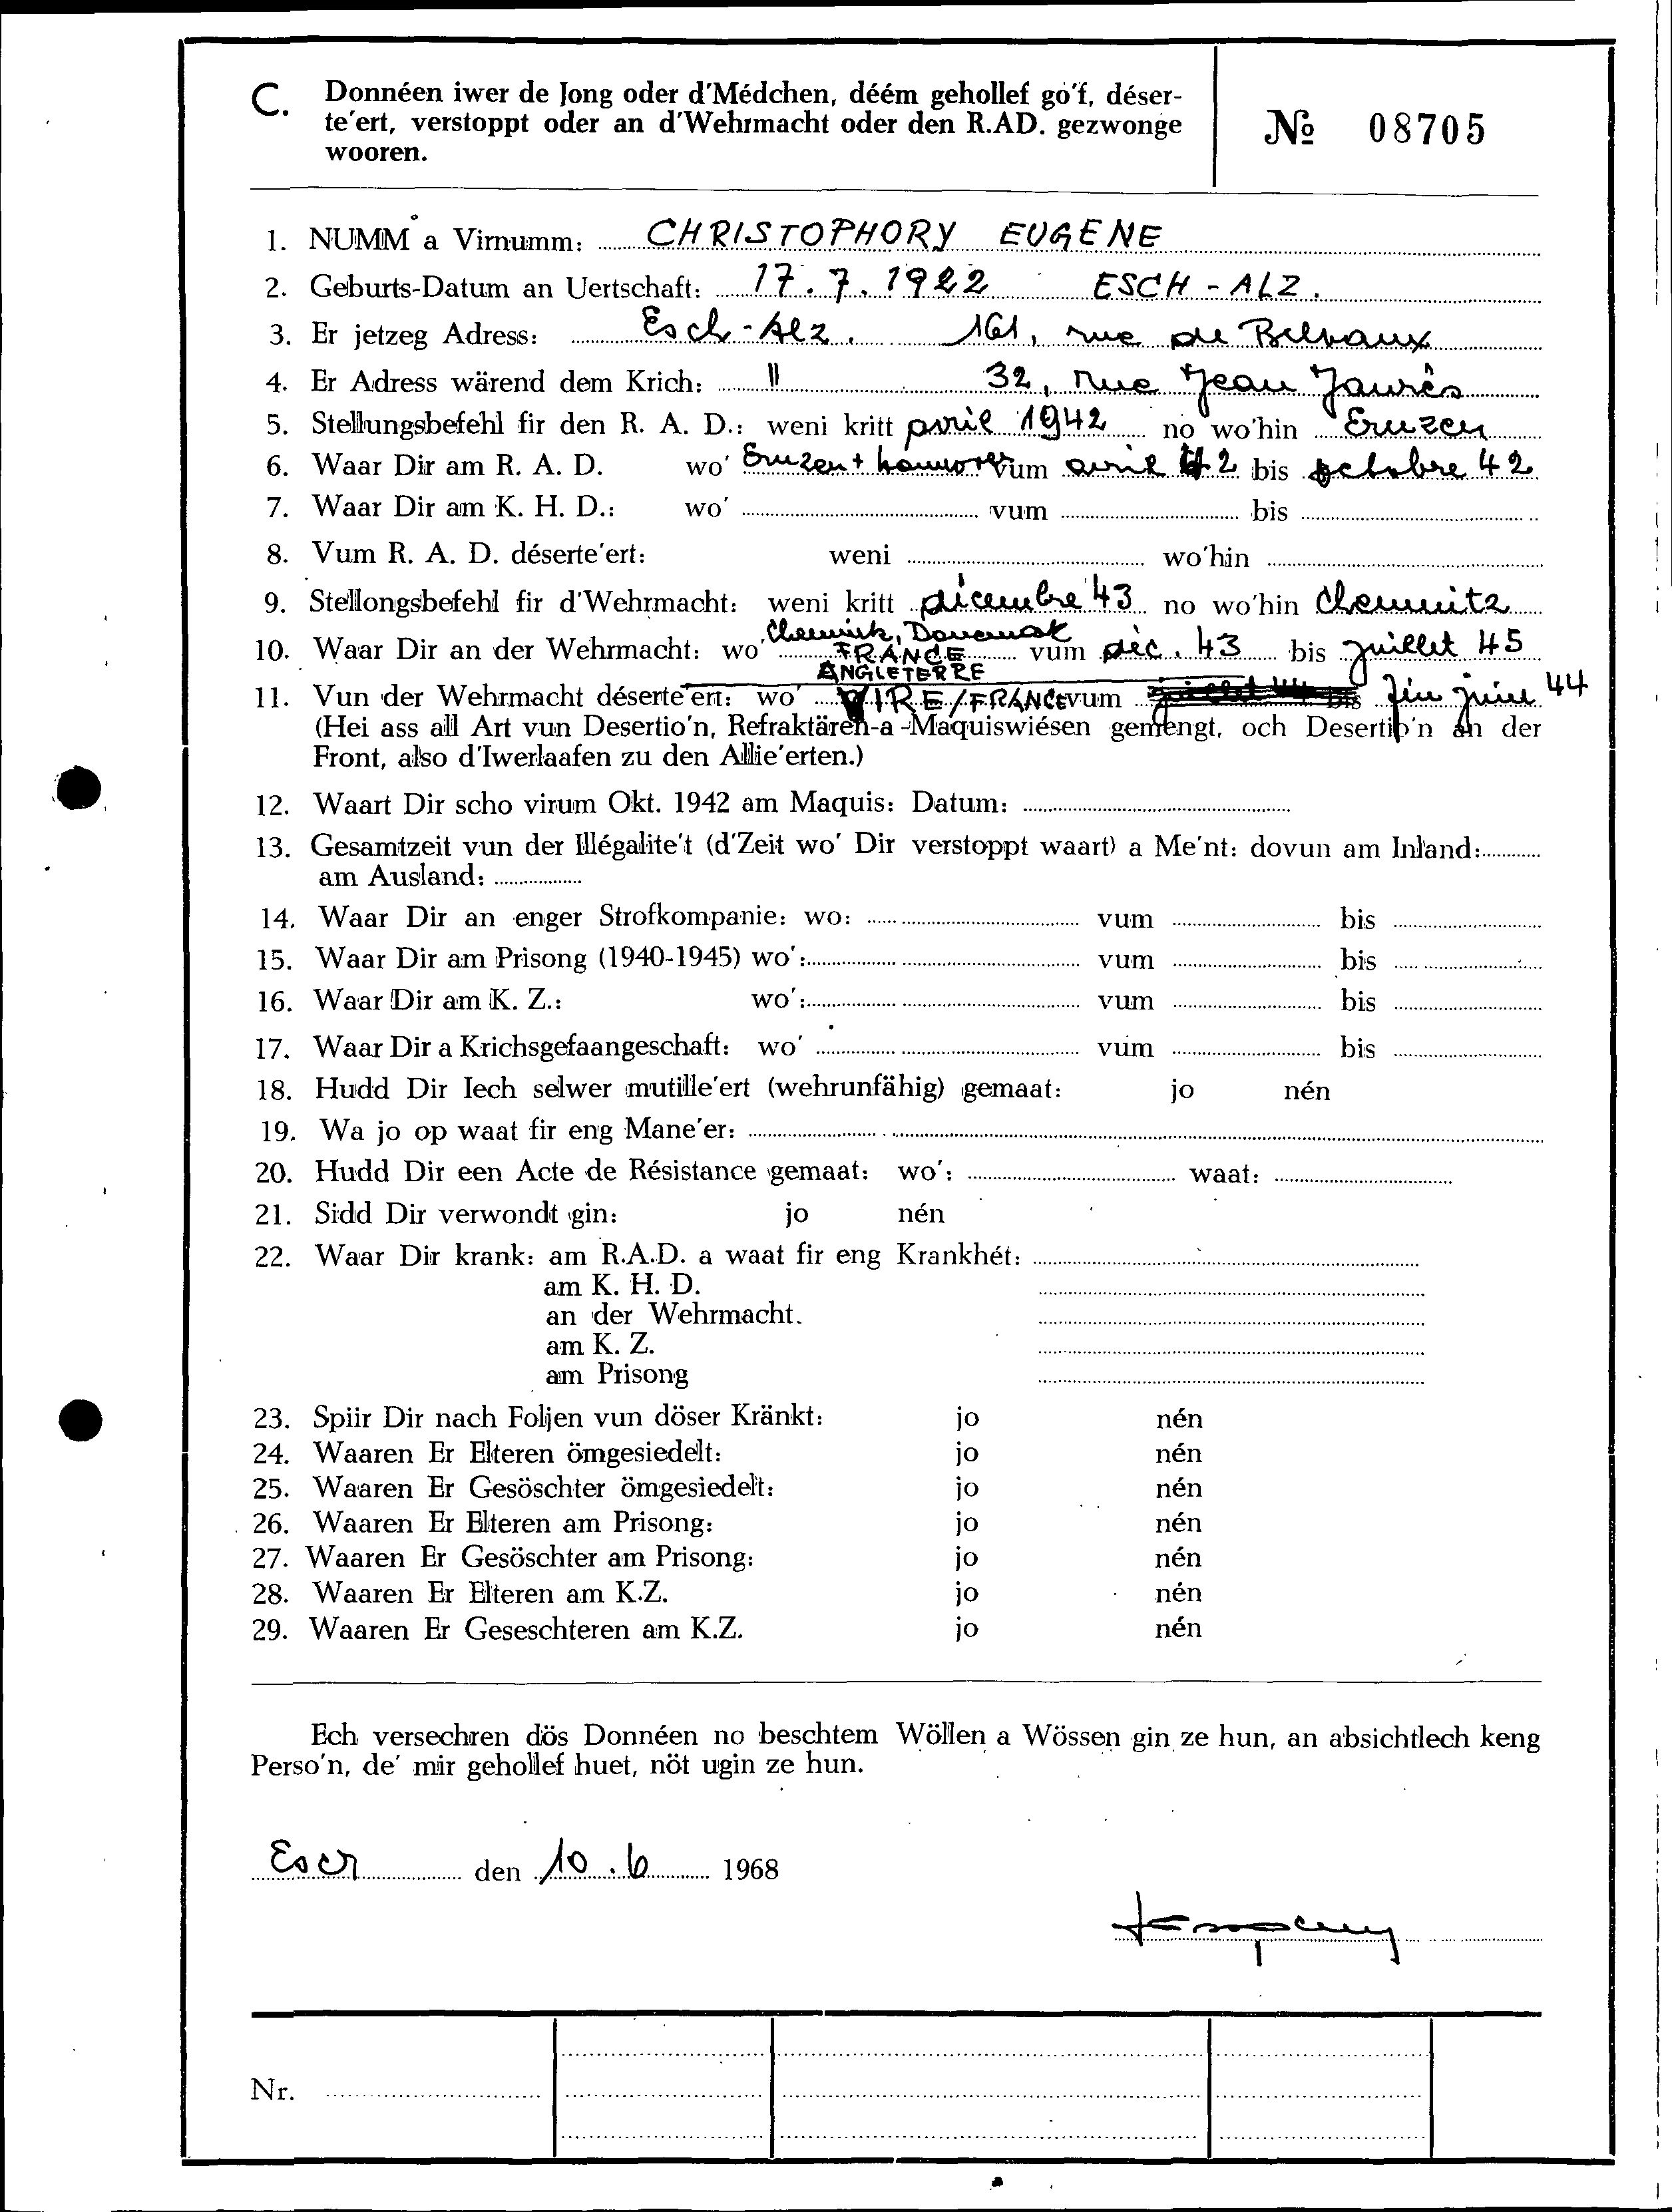 C. Donnéen iwer de Jong oder d'Médchen, déém gehollef go'f, déser-
te'ert, verstoppt oder an d'Wehrmacht oder den R.AD. gezwonge
wooren.
№ 08705
1. NUMM a Virnumm: CHRISTOPHORY EUGENE
2. Geburts-Datum an Uertschaft: 17.7.1922 ESCH-ALZ.
3. Er jetzeg Adress: Esch-Alz. 161, rue de Belvaux
4. Er Adress wärend dem Krich: " 32, rue Jean Jaurès
5. Stellungsbefehl fir den R. A. D.: weni kritt avril 1942 no wo'hin Eruzen
6. Waar Dir am R. A. D. wo' Eruzen + hanovre vum avril 42 bis octobre 42
7. Waar Dir am K. H. D.: wo' vum bis
8. Vum R. A. D. déserte'ert: weni wo'hin
9. Stellongsbefehl fir d'Wehrmacht: weni kritt décembre 43 no wo'hin Chemnitz
10. Waar Dir an der Wehrmacht: wo' Chemnitz, Danemark FRANCE vum déc. 43 bis juillet 45
ANGLETERRE
11. Vun der Wehrmacht déserte'ert: wo' VIRE/FRANCE vum bis fin juin 44
(Hei ass all Art vun Desertio'n, Refraktären-a -Maquiswiésen gemengt, och Desertio'n an der
Front, also d'Iwerlaafen zu den Allie'erten.)
12. Waart Dir scho virum Okt. 1942 am Maquis: Datum:
13. Gesamtzeit vun der Illégalite't (d'Zeit wo' Dir verstoppt waart) a Me'nt: dovun am Inland:
am Ausland:
14. Waar Dir an enger Strofkompanie: wo: vum bis
15. Waar Dir am Prisong (1940-1945) wo': vum bis
16. Waar Dir am K. Z.: wo': vum bis
17. Waar Dir a Krichsgefaangeschaft: wo' vum bis
18. Hudd Dir Iech selwer mutille'ert (wehrunfähig) gemaat: jo nén
19. Wa jo op waat fir eng Mane'er:
20. Hudd Dir een Acte de Résistance gemaat: wo': waat:
21. Sidd Dir verwondt gin: jo nén
22. Waar Dir krank: am R.A.D. a waat fir eng Krankhét:
am K. H. D.
an der Wehrmacht.
am K. Z.
am Prisong
23. Spiir Dir nach Foljen vun döser Kränkt: jo nén
24. Waaren Er Elteren ömgesiedelt: jo nén
25. Waaren Er Gesöschter ömgesiedelt: jo nén
26. Waaren Er Elteren am Prisong: jo nén
27. Waaren Er Gesöschter am Prisong: jo nén
28. Waaren Er Elteren am K.Z. jo nén
29. Waaren Er Geseschteren am K.Z. jo nén
Ech versechren dös Donnéen no beschtem Wöllen a Wössen gin ze hun, an absichtlech keng
Perso'n, de' mir gehollef huet, nöt ugin ze hun.
Esch den 10.6 1968
Nr.